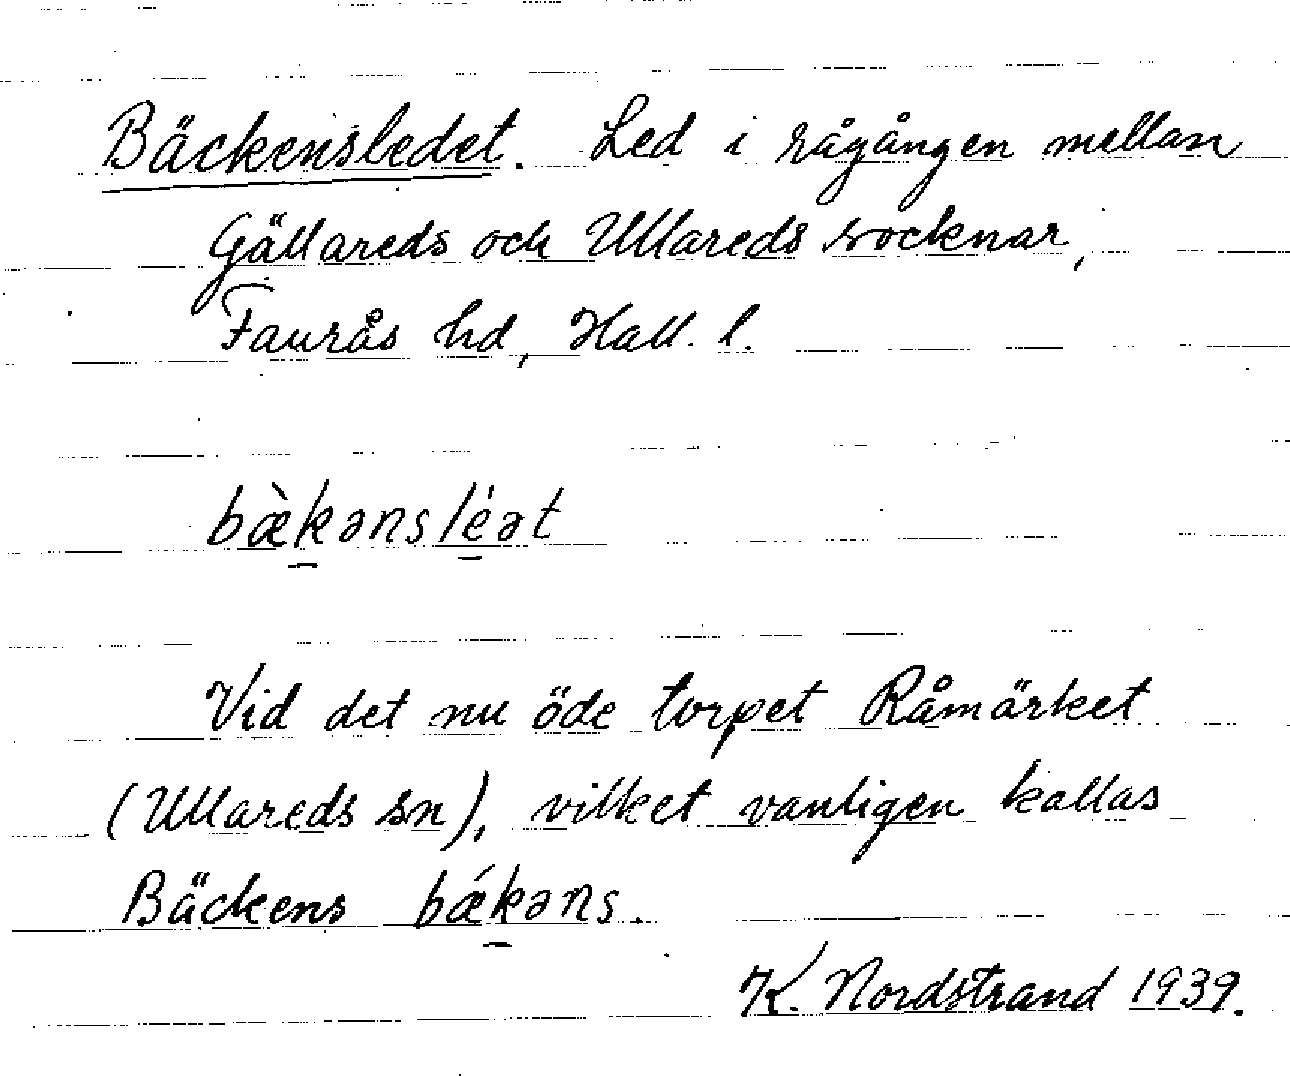 Bäckensledet. Led i rågången mellan
Gällareds och Ullareds socknar,
Faurås hd, Hall. l.
bæ̀k̠ənslé̠ət
Vid det nu öde torpet Råmärket
(Ullareds sn), vilket vanligen kallas
Bäckens bǽk̠əns.
K. Nordstrand 1939.